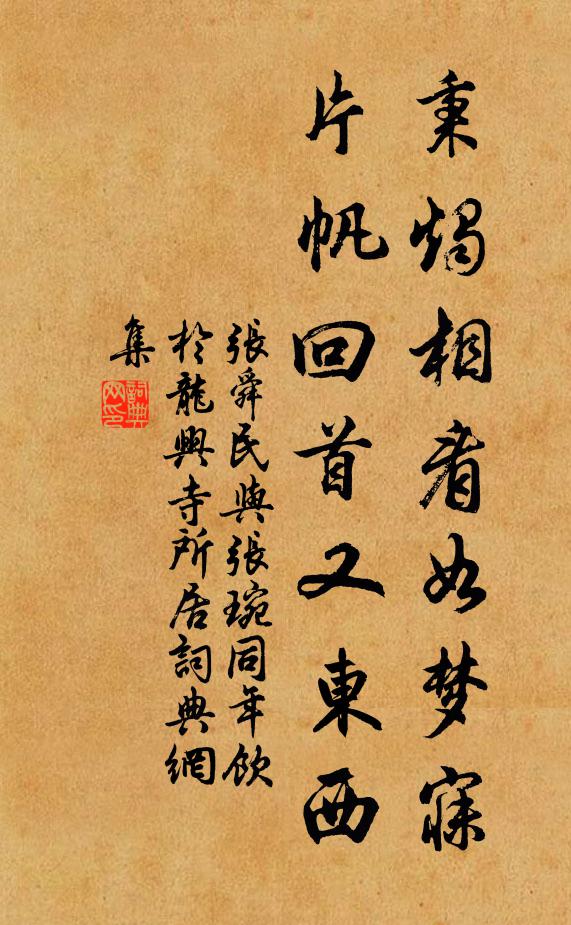 秉燭相看如梦寐
片帆回首又東西
張舜民與張琬同年飲
於龍興寺所居詞典網
集
詞典
网印